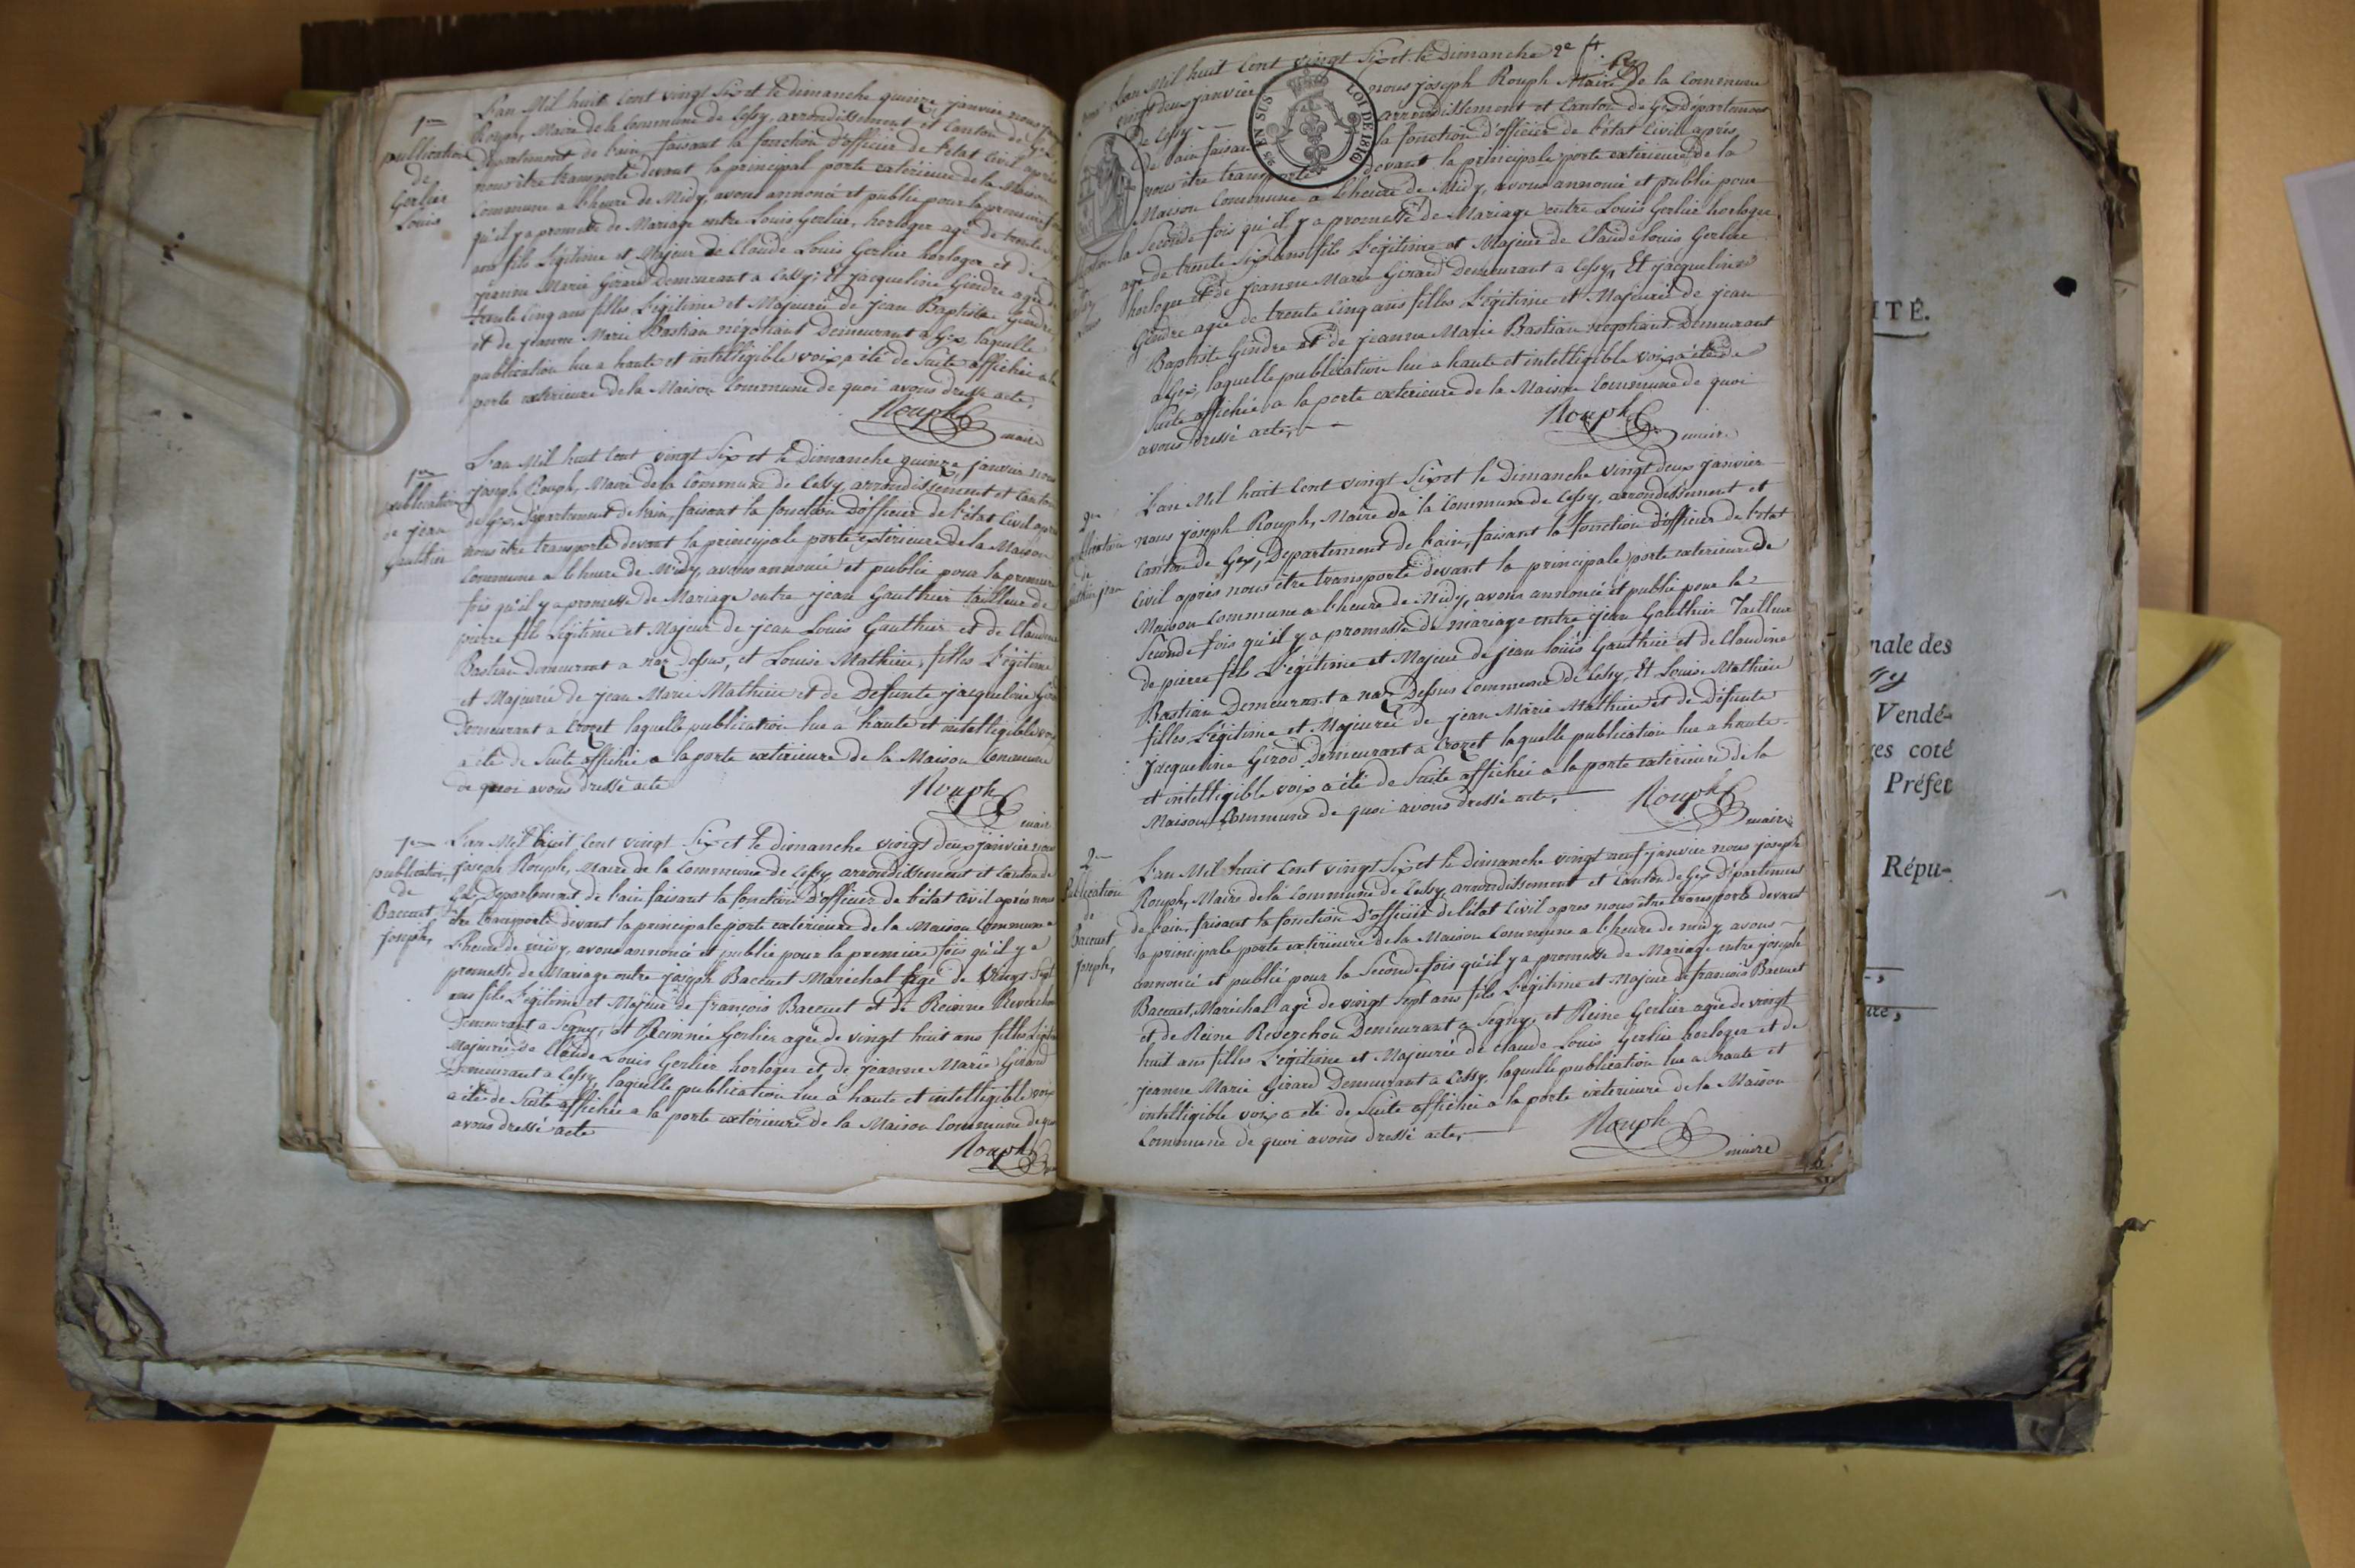 1ere
publication
de
Gerlier
Louis
L'an Mil huit Cent vingt Six et le dimanche quinze janvier nous
Rouph, Maire de la Commune de Cessy, arrondissement et Canton de Gex,
Département de l'ain, faisant la fonction d'officier de l'état Civil après
nous être transporté devant la principal porte extérieure de la Maison
Commune a l'heure de Midy, avons annoncé et publié pour la premiere fois
qu'il y a promesse de Mariage entre Louis Gerlier, horloger agé de trente Six
ans fils Légitime et Majeur de Claude Louis Gerlier horloger et de
jeanne Marie Girard Demeurant a Cessy; Et jacqueline Gindre agée de
trente Cinq ans filles Légitime et Majeurée de jean Baptiste Gindre
et de jeanne Marie Bastian négotiant Demeurant a Gex, laquelle
publication lue a haute et intelligible voix a été de Suite affichée a la
porte extérieure de la Maison Commune de quoi avons dressé acte,
Rouph
maire
1ere
publication
de jean
Gauthier
L'an Mil huit Cent vingt Six et le dimanche quinze janvier nous
joseph Rouph, Maire de la Commune de Cessy, arrondissement et Canton
de Gex, Département de l'ain, faisant la fonction d'officier de l'état Civil après
nous être transporté devant la principale porte extérieure de la Maison
Commune a l'heure de Midy, avons annoncé et publié pour la premiere
fois qu'il y a promesse de Mariage entre jean Gauthier tailleur de
pierre fils Légitime et Majeur de jean Louis Gauthier et de Claudine
Bastian Demeurant a naz Dessus, et Louise Mathieu, filles Légitime
et Majeurée de jean Marie Mathieu et de Defunte jacqueline Girod
Demeurant a Crozet laquelle publication lue a haute et intelligible voix
a été de Suite affichée a la porte extérieure de la Maison Commune
de quoi avons dressé acte
Rouph
maire
1ere
publication
de
Baccuet
joseph,
L'an Mil huit Cent vingt Six et le dimanche vingt deux janvier nous
joseph Rouph, Maire de la Commune de Cessy, arrondissement et Canton de
Gex Département de l'ain faisant la fonction d'officier de l'état Civil après nous
être transporté devant la principale porte extérieure de la Maison Commune a
l'heure de midy, avons annoncé et publié pour la premiere fois qu'il y a
promesse de Mariage entre joseph Baccuet Maréchal agé de vingt Sept
ans fils Légitime et Majeur de françois Baccuet et de Reinne Reverchon
Demeurant a Segny, et Reinnée Gerlier agée de vingt huit ans filles Légitime
Majeurée de Claude Louis Gerlier horloger et de jeanne Marie Girard
Demeurant a Cessy, laquelle publication lue a haute et intelligible voix
a été de Suite affichée a la porte extérieure de la Maison Commune de quoi
avons dressé acte
Rouph
L'an Mil huit Cent vingt Six et le Dimanche 2e ft
vingt deux janvier nous joseph Rouph Maire de la Commune
de Cessy arrondissement et Canton de Gex département
de l'ain faisant la fonction d'officier de l'état Civil après
25 EN SUS LOI DE 1816
nous être transporté devant la principale porte extérieure de la
Maison Commune a l'heure de Midy, avons annoncé et publié pour
la Seconde fois qu'il y a promesse de Mariage entre Louis Gerlier horloger
agé de trente Six ans fils Légitime et Majeur de Claude louis Gerlier
horloger et de jeanne Marie Girard Demeurant a Cessy, Et jacqueline
Gindre agée de trente Cinq ans filles Légitime et Majeurée de jean
Baptiste Gindre et de jeanne Marie Bastian negotiant Demeurant
a Gex, laquelle publication lue a haute et intelligible voix a été de
Suite affichée a la porte extérieure de la Maison Commune de quoi
avons dressé acte,
Rouph
maire
2me
publication
de
Gauthier jean
L'an Mil huit Cent vingt Six et le Dimanche vingt deux janvier
nous joseph Rouph, Maire de la Commune de Cessy, arrondissement et
Canton de Gex, Département de l'ain, faisant la fonction d'officier de l'état
Civil après nous être transporté devant la principale porte extérieure de
Maison Commune a l'heure de Midy, avons annoncé et publié pour la
Seconde fois qu'il y a promesse de mariage entre jean Gauthier Tailleur
de pierre fils Légitime et Majeur de jean louis Gauthier et de Claudine
Bastian Demeurant a naz Dessus Commune de Cessy, Et Louise Mathieu
filles Légitime et Majeurée de jean Marie Mathieu et de Défunte
jacqueline Girod Demeurant a Crozet laquelle publication lue a haute
et intelligible voix a été de Suite affichée a la porte extérieure de la
Maison Commune de quoi avons dressé acte,
Rouph
maire
2me
Publication
de
Baccuet
joseph,
L'an Mil huit Cent vingt Six et le dimanche vingt neuf janvier nous joseph
Rouph, Maire de la Commune de Cessy, arrondissement et Canton de Gex Département
de l'ain, faisant la fonction D'officier de l'état Civil apres nous être transporté devant
la principale porte extérieure de la Maison Commune a l'heure de midy avons
annoncé et publié pour la Seconde fois qu'il y a promesse de Mariage entre joseph
Baccuet, Maréchal agé de vingt Sept ans fils Légitime et Majeur de francois Baccuet
et de Reine Reverchon Demeurant a Segny, et Reine Gerlier agée de vingt
huit ans filles Légitime et Majeurée de Claude Louis Gerlier horloger et de
jeanne Marie Girard Demeurant a Cessy, laquelle publication lue a haute et
intelligible voix a été de Suite affichée a la porte extérieure de la Maison
Commune de quoi avons dressé acte,
Rouph
maire
ITÉ.
nale des
Vendé-
ges coté
Préfet
Répu-